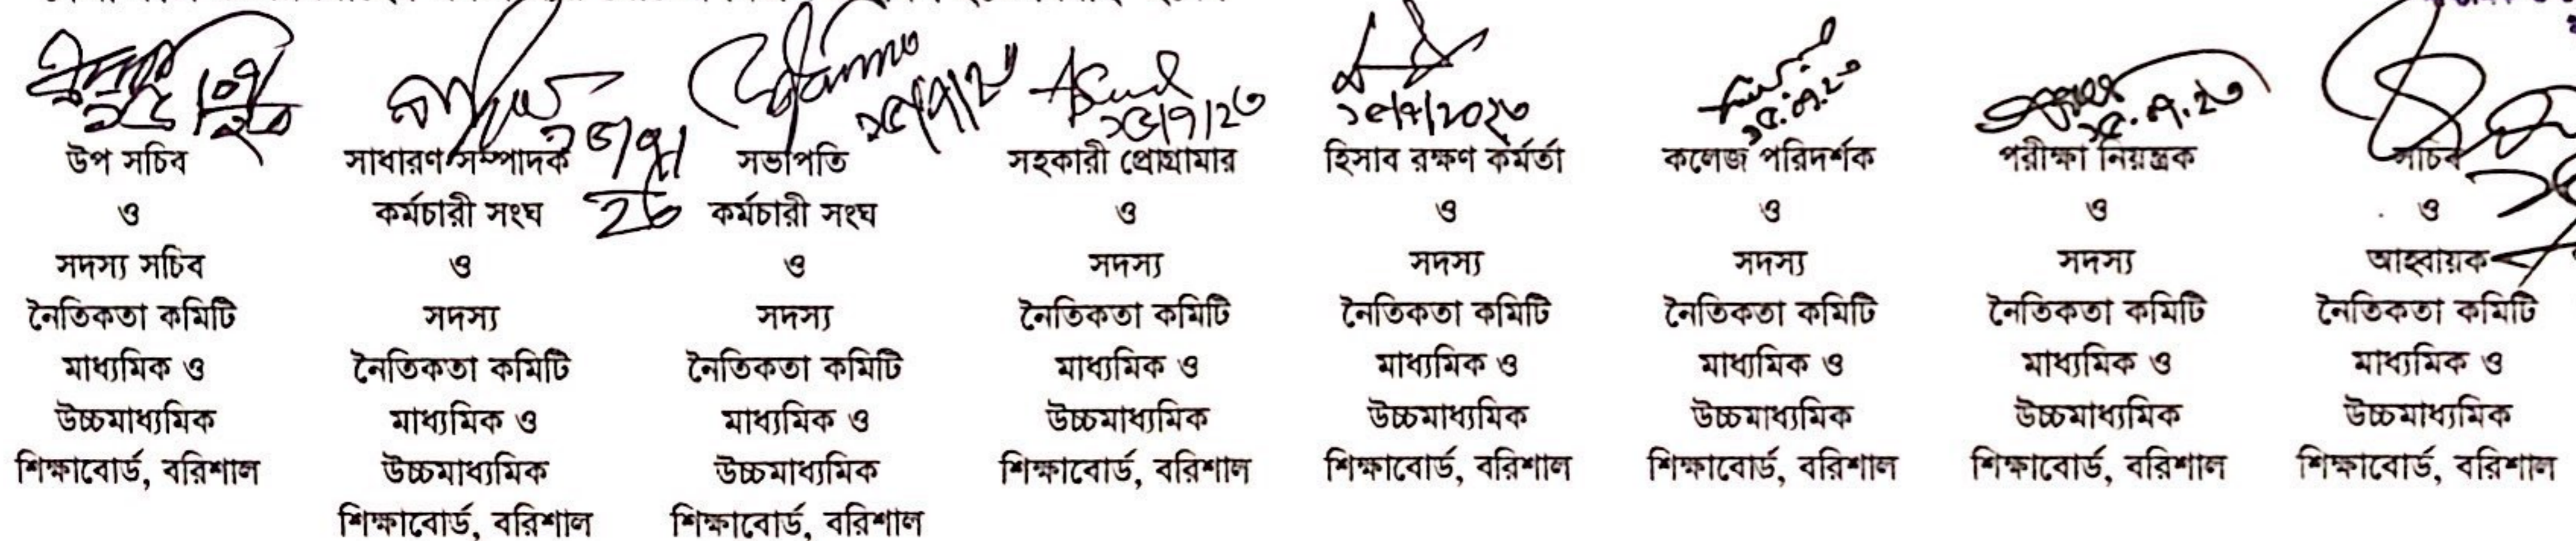 উপ সচিব
ও
সদস্য সচিব
নৈতিকতা কমিটি
মাধ্যমিক ও
উচ্চমাধ্যমিক
শিক্ষাবোর্ড, বরিশাল
সাধারণ সম্পাদক
কর্মচারী সংঘ
ও
সদস্য
নৈতিকতা কমিটি
মাধ্যমিক ও
উচ্চমাধ্যমিক
শিক্ষাবোর্ড, বরিশাল
সভাপতি
কর্মচারী সংঘ
ও
সদস্য
নৈতিকতা কমিটি
মাধ্যমিক ও
উচ্চমাধ্যমিক
শিক্ষাবোর্ড, বরিশাল
২৫/৭/২৩
সহকারী প্রোগ্রামার
ও
সদস্য
নৈতিকতা কমিটি
মাধ্যমিক ও
উচ্চমাধ্যমিক
শিক্ষাবোর্ড, বরিশাল
২৫/৭/২০২৩
হিসাব রক্ষণ কর্মর্তা
ও
সদস্য
নৈতিকতা কমিটি
মাধ্যমিক ও
উচ্চমাধ্যমিক
শিক্ষাবোর্ড, বরিশাল
২৫.০৭.২৩
কলেজ পরিদর্শক
ও
সদস্য
নৈতিকতা কমিটি
মাধ্যমিক ও
উচ্চমাধ্যমিক
শিক্ষাবোর্ড, বরিশাল
২৫.০৭.২৩
পরীক্ষা নিয়ন্ত্রক
ও
সদস্য
নৈতিকতা কমিটি
মাধ্যমিক ও
উচ্চমাধ্যমিক
শিক্ষাবোর্ড, বরিশাল
সচিব
ও
আহ্বায়ক
নৈতিকতা কমিটি
মাধ্যমিক ও
উচ্চমাধ্যমিক
শিক্ষাবোর্ড, বরিশাল